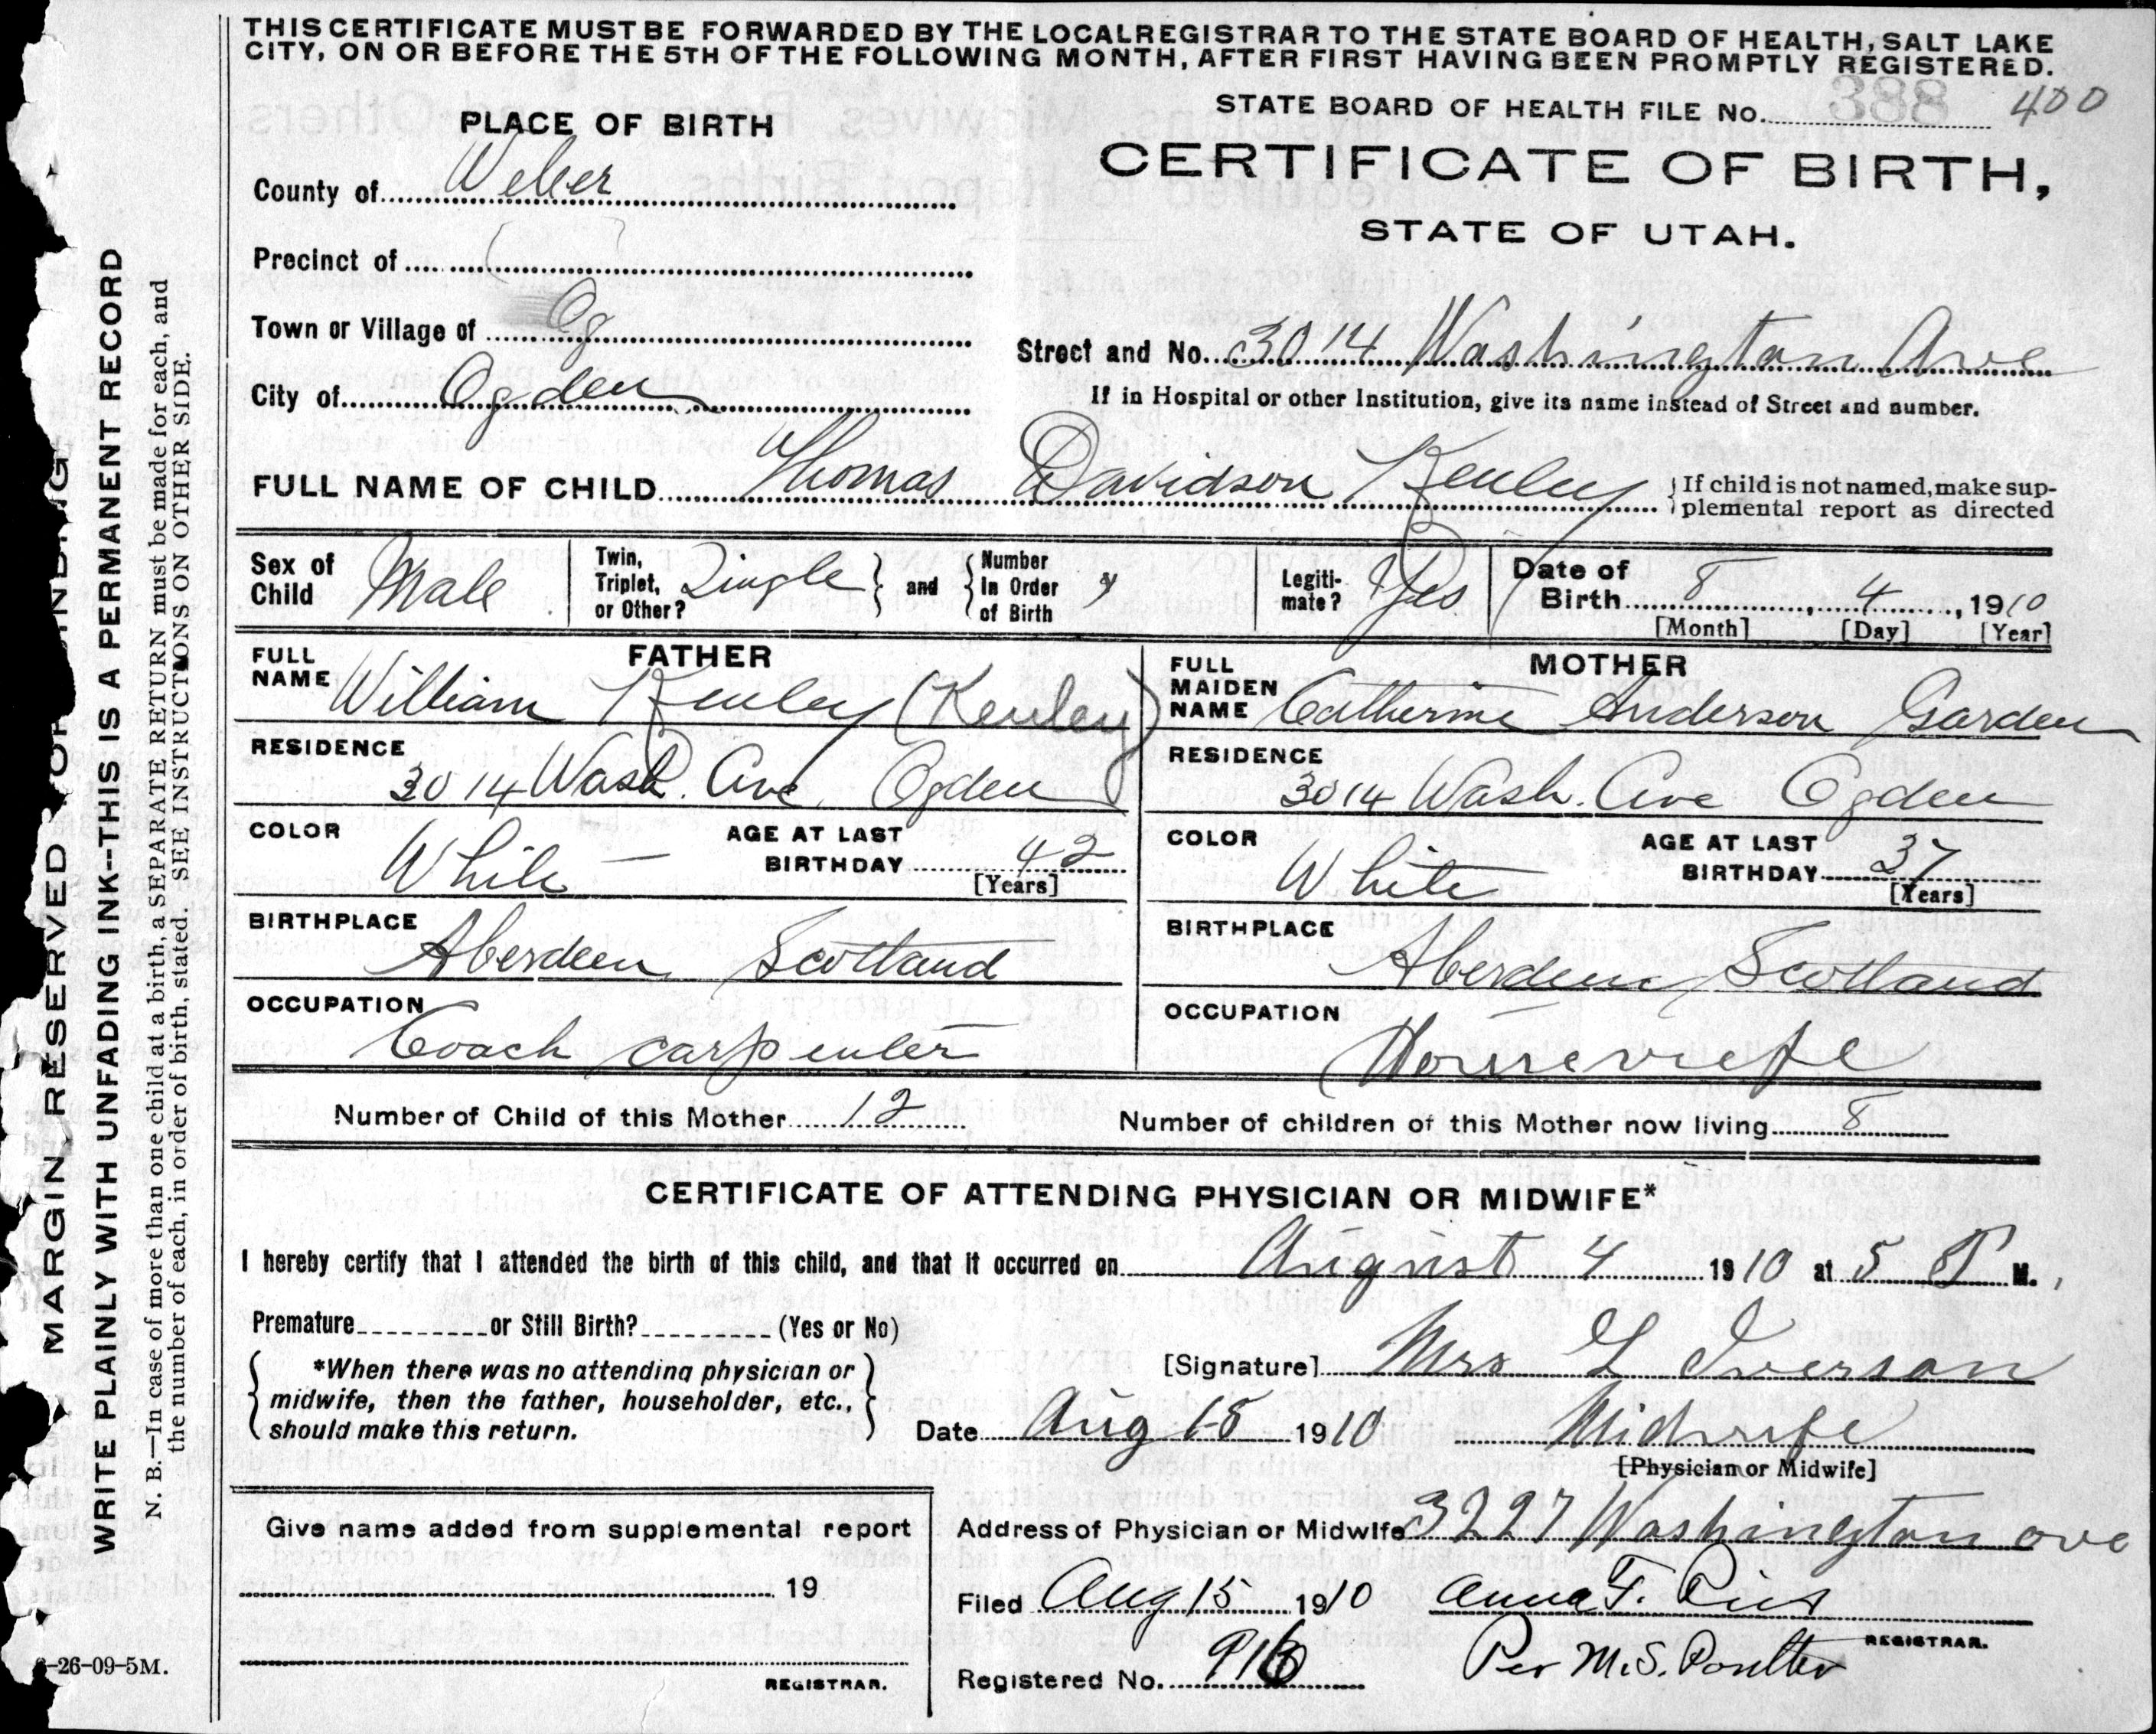 THIS CERTIFICATE MUST BE FORWARDED BY THE LOCAL REGISTRAR TO THE STATE BOARD OF HEALTH, SALT LAKE
CITY, ON OR BEFORE THE 5TH OF THE FOLLOWING MONTH, AFTER FIRST HAVING BEEN PROMPTLY REGISTERED.
STATE BOARD OF HEALTH FILE No. 388 400
PLACE OF BIRTH
CERTIFICATE OF BIRTH,
STATE OF UTAH.
County of Weber
Precinct of
Town or Village of Og
City of Ogden
Street and No. 3014 Washington Ave
If in Hospital or other Institution, give its name instead of Street and number.
FULL NAME OF CHILD Thomas Davidson Kenley
If child is not named, make sup-
plemental report as directed
Sex of Child Male
Twin, Triplet, or Other? Single and Number In Order of Birth
Legiti-mate? Yes
Date of Birth 8, 4, 1910
[Month] [Day] [Year]
FATHER
FULL NAME William Kenley (Kenley)
RESIDENCE
3014 Wash. Ave Ogden
COLOR White
AGE AT LAST BIRTHDAY 42
[Years]
BIRTHPLACE
Aberdeen Scotland
OCCUPATION
Coach carpenter
MOTHER
FULL MAIDEN NAME Catherine Anderson Garden
RESIDENCE
3014 Wash. Ave Ogden
COLOR White
AGE AT LAST BIRTHDAY 37
[Years]
BIRTHPLACE
Aberdeen Scotland
OCCUPATION
Housewife
Number of Child of this Mother 12
Number of children of this Mother now living 8
CERTIFICATE OF ATTENDING PHYSICIAN OR MIDWIFE*
I hereby certify that I attended the birth of this child, and that it occurred on August 4 1910 at 5 P M.
Premature or Still Birth? (Yes or No)
*When there was no attending physician or
midwife, then the father, householder, etc.,
should make this return.
[Signature] Mrs L Iverson
Date Aug 15 1910
Midwife
[Physician or Midwife]
Give name added from supplemental report
19
REGISTRAR.
Address of Physician or Midwife 3227 Washington ave
Filed Aug 15 1910 Anna F.
REGISTRAR.
Registered No. 916
Per M.S. Poulter
MARGIN RESERVED FOR BINDING
WRITE PLAINLY WITH UNFADING INK--THIS IS A PERMANENT RECORD
N. B.—In case of more than one child at a birth, a SEPARATE RETURN must be made for each, and
the number of each, in order of birth, stated. SEE INSTRUCTIONS ON OTHER SIDE.
-26-09-5M.